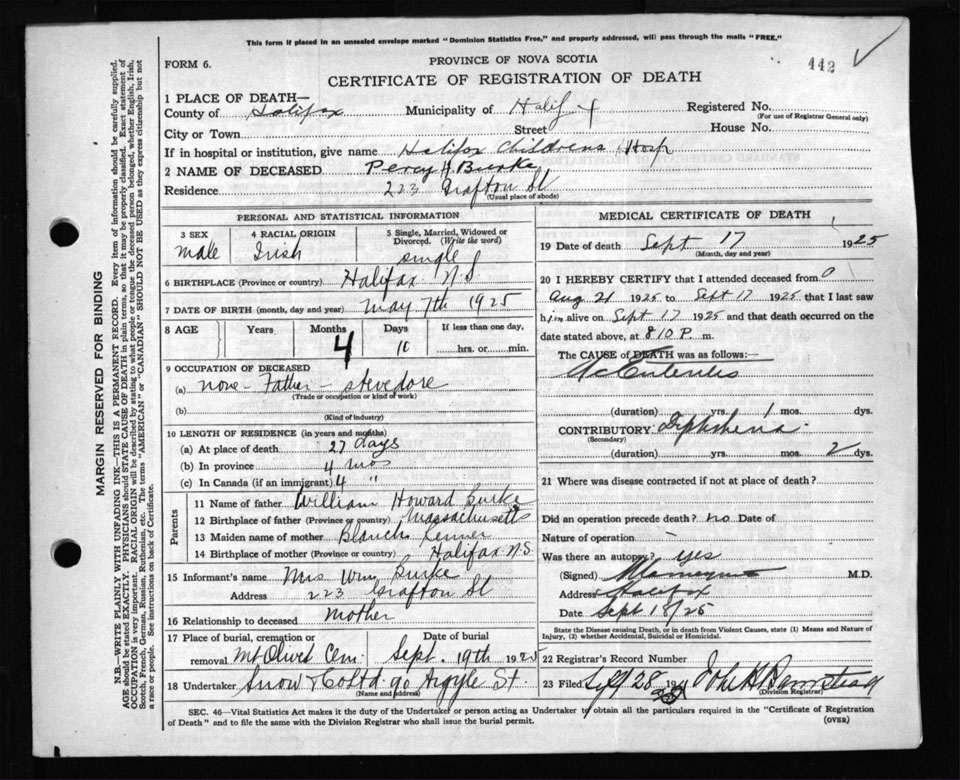 This form if placed in an unsealed envelope marked "Dominion Statistics Free," and properly addressed, will pass through the mails "FREE."
FORM 6.
PROVINCE OF NOVA SCOTIA
442
CERTIFICATE OF REGISTRATION OF DEATH
1 PLACE OF DEATH—
County of Halifax Municipality of Halifx Registered No.
(For use of Registrar General only)
City or Town Street House No.
If in hospital or institution, give name Halifax Childrens Hosp
2 NAME OF DECEASED Percy H Burke
Residence 223 Grafton St
(Usual place of abode)
PERSONAL AND STATISTICAL INFORMATION
3 SEX 4 RACIAL ORIGIN 5 Single, Married, Widowed or Divorced. (Write the word)
male Irish single
6 BIRTHPLACE (Province or country) Halifax N S
7 DATE OF BIRTH (month, day and year) May 7th 1925
8 AGE Years Months Days If less than one day,
4 10 hrs. or min.
9 OCCUPATION OF DECEASED
(a) none - Father - stevedore
(Trade or occupation or kind of work)
(b)
(Kind of industry)
10 LENGTH OF RESIDENCE (in years and months)
(a) At place of death 27 days
(b) In province 4 mos
(c) In Canada (if an immigrant) 4 "
Parents
11 Name of father William Howard Burke
12 Birthplace of father (Province or country) Massachusetts
13 Maiden name of mother Blanch
14 Birthplace of mother (Province or country) Halifax N.S.
15 Informant's name Mrs Wm Burke
Address 223 Grafton St
16 Relationship to deceased Mother
17 Place of burial, cremation or Date of burial
removal Mt Olivet Cem. Sept. 19th 1925
18 Undertaker Snow & Co Ltd 90 Argyle St.
(Name and address)
MEDICAL CERTIFICATE OF DEATH
19 Date of death Sept 17 1925
(Month, day and year)
20 I HEREBY CERTIFY that I attended deceased from
Aug 21 1925 to Sept 17 1925 that I last saw
him alive on Sept 17 1925 and that death occurred on the
date stated above, at 8 10 P. m.
The CAUSE of DEATH was as follows:
Ac Enteritis
(duration) yrs. 1 mos. dys.
CONTRIBUTORY Diphtheria
(Secondary)
(duration) yrs. mos. 2 dys.
21 Where was disease contracted if not at place of death?
Did an operation precede death? no Date of
Nature of operation -
Was there an autopsy? yes
(Signed) M.D.
Address Halifax
Date Sept 18/25
State the Disease causing Death, or in death from Violent Causes, state (1) Means and Nature of Injury, (2) whether Accidental, Suicidal or Homicidal.
22 Registrar's Record Number
23 Filed 28 John H Barnstead
(Division Registrar)
SEC. 46—Vital Statistics Act makes it the duty of the Undertaker or person acting as Undertaker to obtain all the particulars required in the "Certificate of Registration
of Death" and to file the same with the Division Registrar who shall issue the burial permit.
(OVER)
MARGIN RESERVED FOR BINDING
N.B.—WRITE PLAINLY WITH UNFADING INK—THIS IS A PERMANENT RECORD. Every item of information should be carefully supplied.
AGE should be stated EXACTLY. PHYSICIANS should STATE CAUSE OF DEATH in plain terms, so that it may be properly classified. Exact statement of
OCCUPATION is very important. RACIAL ORIGIN will be described by stating to what people or tongue the deceased person belonged, whether English, Irish,
Scotch, French, German, Russian, Ruthenian, etc. The terms "AMERICAN" or "CANADIAN" SHOULD NOT BE USED as they express citizenship but not
a race or people. See instructions on back of Certificate.